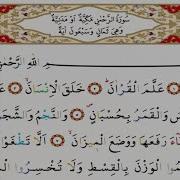 سُورَةُ الرَّحْمٰنِ مَكِّيَّةٌ أَوْ مَدَنِيَّةٌ
وَهِيَ ثَمَانٍ وَسَبْعُونَ آيَةً
اللَّهِ الرَّحْمٰنِ
عَلَّمَ الْقُرْاٰنَ ۝ خَلَقَ الْاِنْسَانَ ۝
وَالْقَمَرُ بِحُسْبَانٍ ۝ وَالنَّجْمُ وَالشَّجَرُ
رَفَعَهَا وَوَضَعَ الْمِيزَانَ ۝ اَلَّا تَطْغَوْا
الْوَزْنَ بِالْقِسْطِ وَلَا تُخْسِرُوا